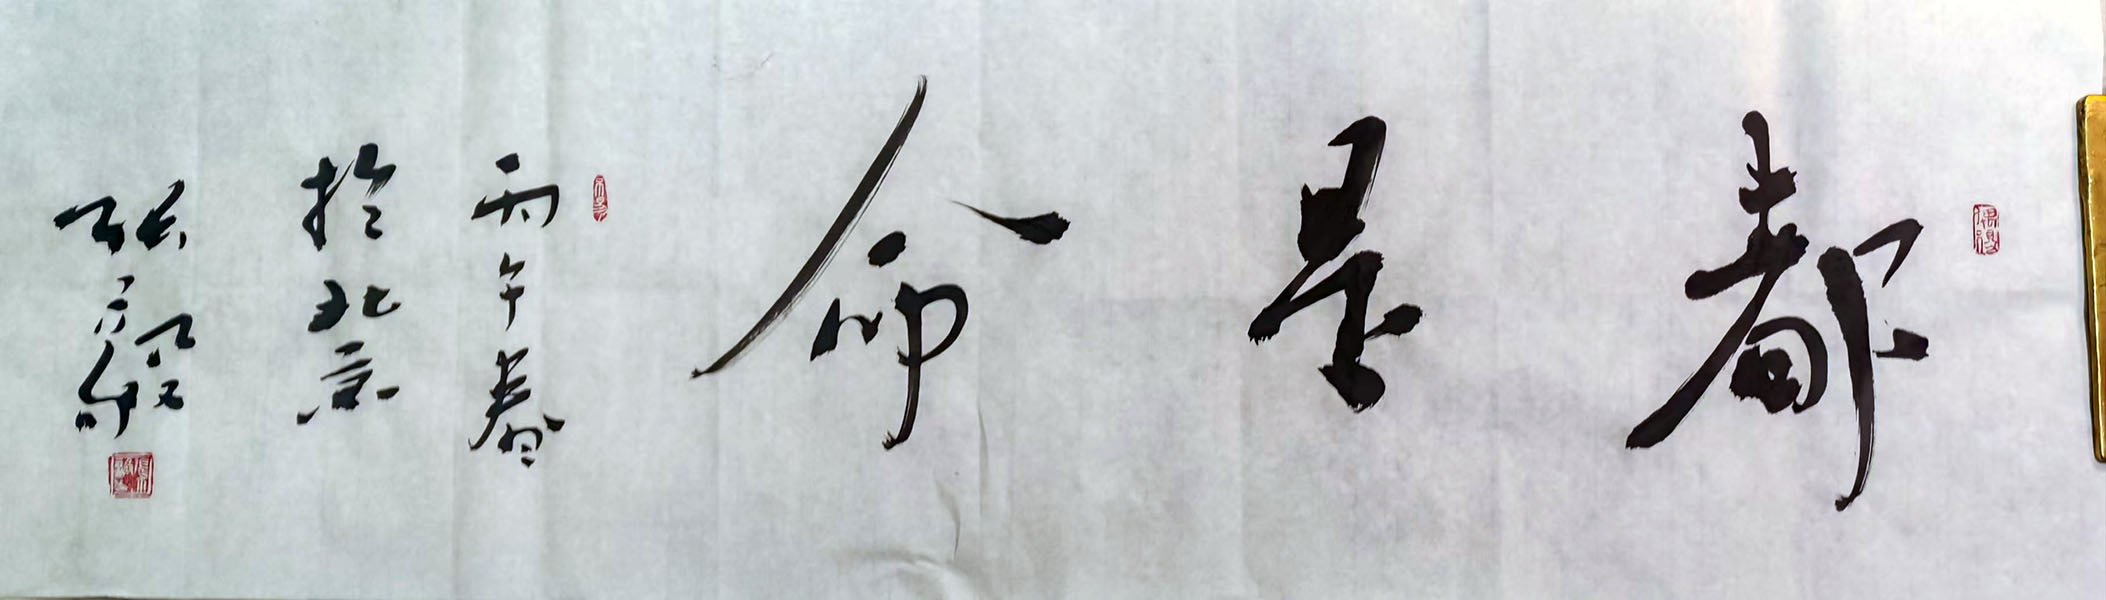 都是命
丙午春
於北京